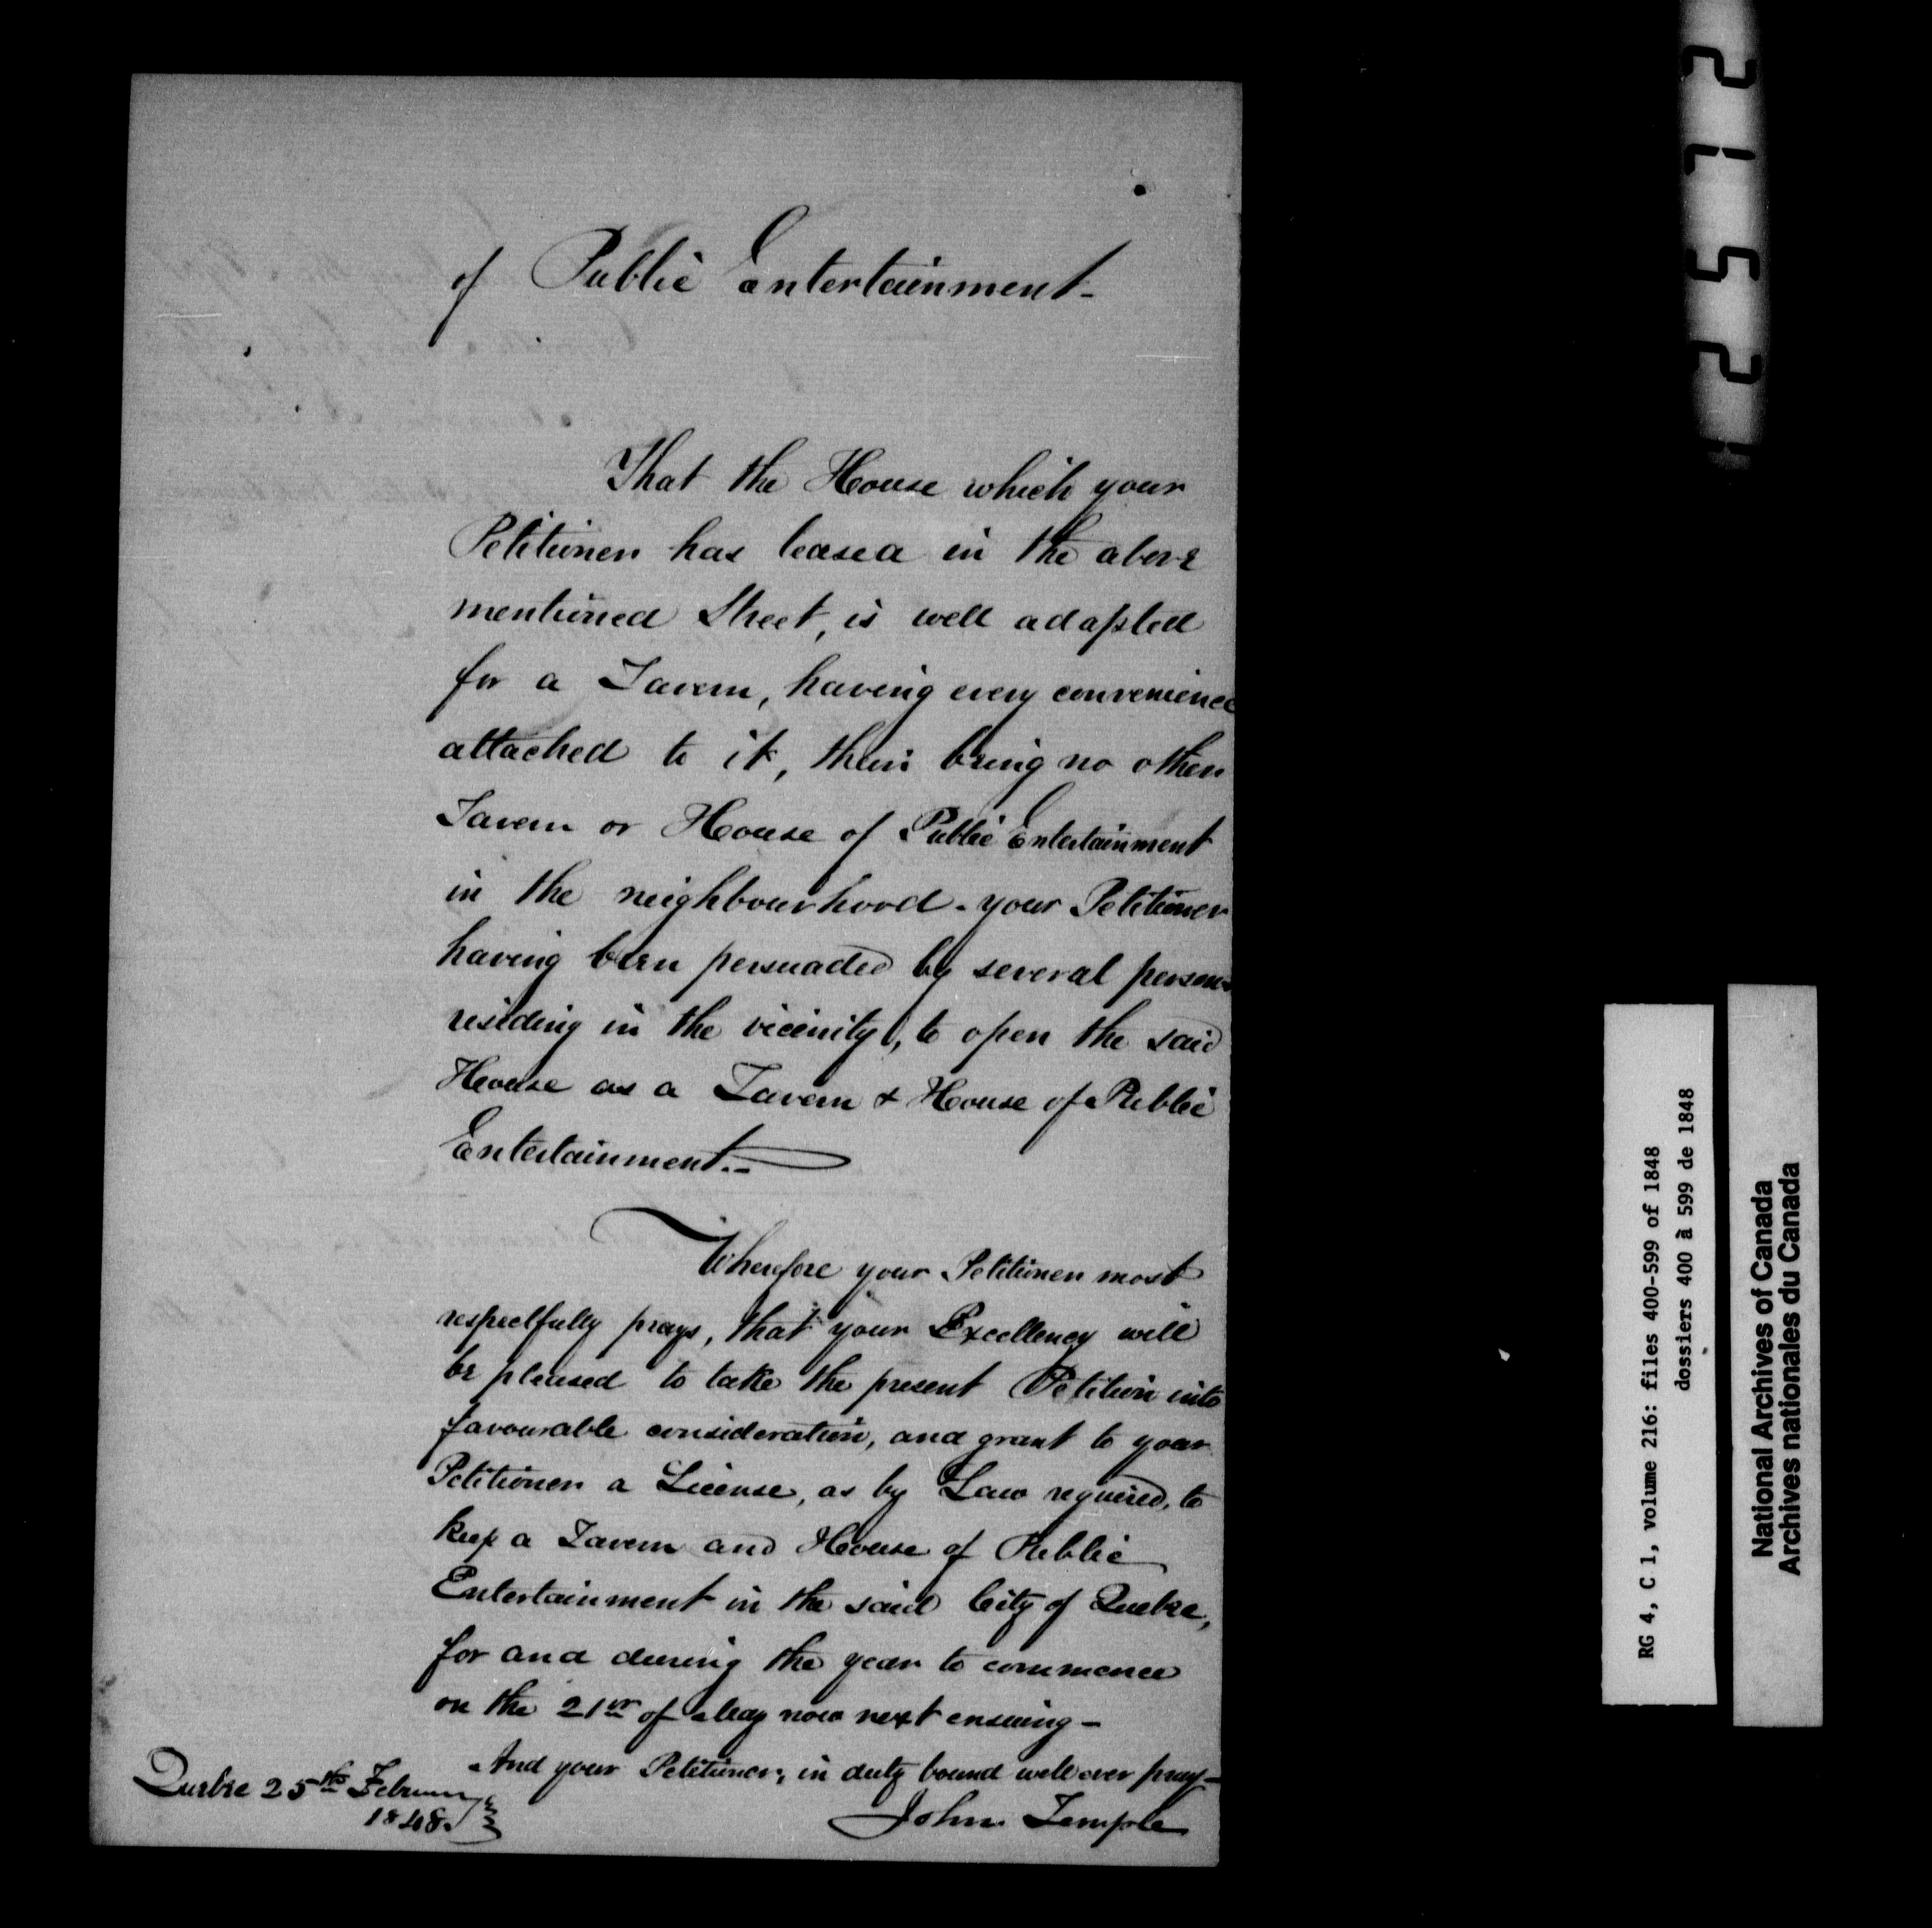 of Public Entertainment-
That the House which your
Petitioner has leased in the above
mentioned Street, is well adapted
for a Tavern, having every convenience
attached to it, their being no other
Tavern or House of Public Entertainment
in the neighbourhood - your Petitioner
having been persuaded by several persons
residing in the vicinity, to open the said
House as a Tavern & House of Public
Entertainment.-
Wherefore your Petitioner most
respectfully prays, that your Excellency will
be pleased to take the present Petition into
favourable consideration, and grant to your
Petitioner a License, as by Law required, to
keep a Tavern and House of Public
Entertainment in the said City of Quebec,
for and during the year to commence
on the 21st of May now next ensuing -
And your Petitioner, in duty bound will ever pray -
Quebec 25th February
1848.
John Temple
21521
RG 4, C 1, volume 216: files 400-599 of 1848
dossiers 400 à 599 de 1848
National Archives of Canada
Archives nationales du Canada